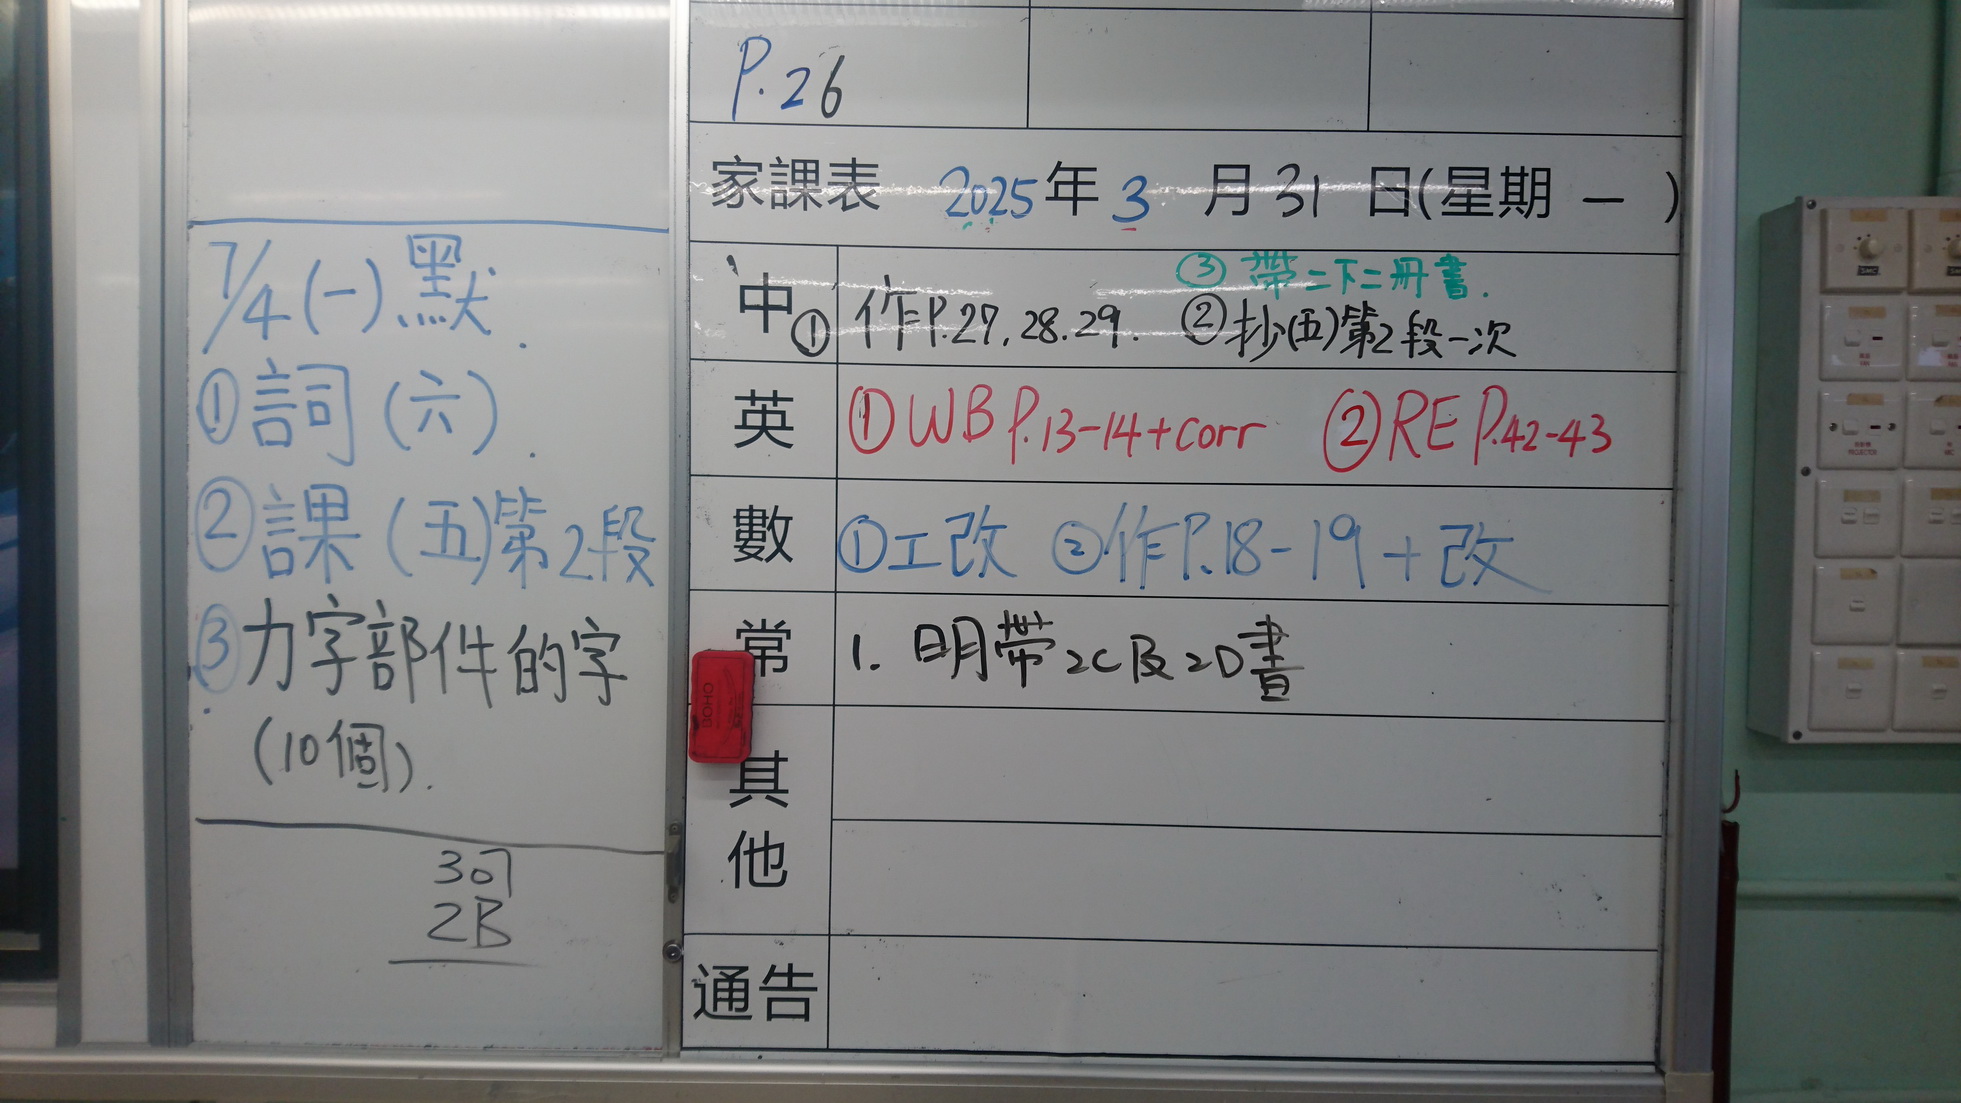 7/4(一)默.
①詞(六).
②課(五)第2段
③力字部件的字
(10個).
3句
2B
P.26
家課表 2025年3月31日(星期一)
③帶二下二冊書.
中 ①作P.27,28.29. ②抄(五)第2段一次
英 ①WB P.13-14+corr ②RE P.42-43
數 ①工改 ②作P.18-19+改
常 1. 明帶2C及2D書
其他
通告
BOHO
PROJECTOR